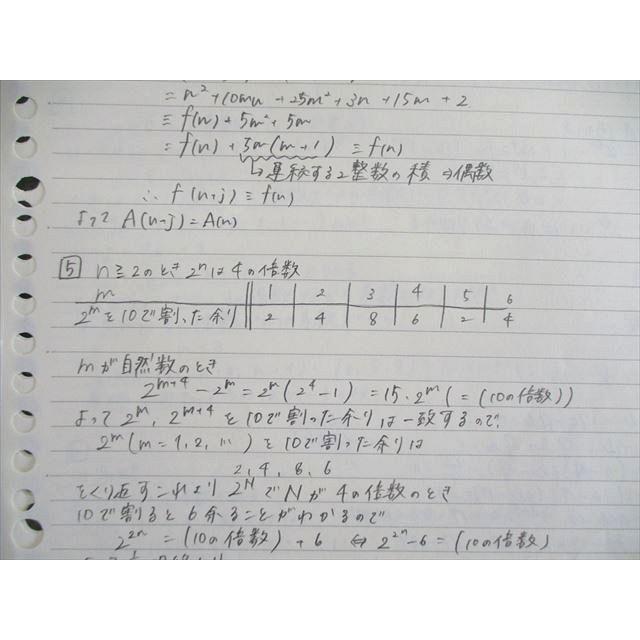 = n² + 10mn + 25m² + 3n + 15m + 2
≡ f(n) + 5m² + 5m
= f(n) + 5m(m+1) ≡ f(n)
↳ 連続する2整数の積 ⇒ 偶数
∴ f(n+j) ≡ f(n)
よって A(n+j) = A(n)
5 n≧2のとき 2ⁿは4の倍数
m 1 2 3 4 5 6
2ᵐを10で割った余り 2 4 8 6 2 4
mが自然数のとき
2ᵐ⁺⁴ - 2ᵐ = 2ᵐ(2⁴-1) = 15・2ᵐ (= (10の倍数))
よって 2ᵐ, 2ᵐ⁺⁴ を10で割った余りは一致するので、
2ᵐ(m = 1, 2, …) を10で割った余りは
2, 4, 8, 6
をくり返す これより 2ᴺ でNが4の倍数のとき
10で割ると6余ることがわかるので
2^2ⁿ = (10の倍数) + 6 ⇔ 2^2ⁿ - 6 = (10の倍数)